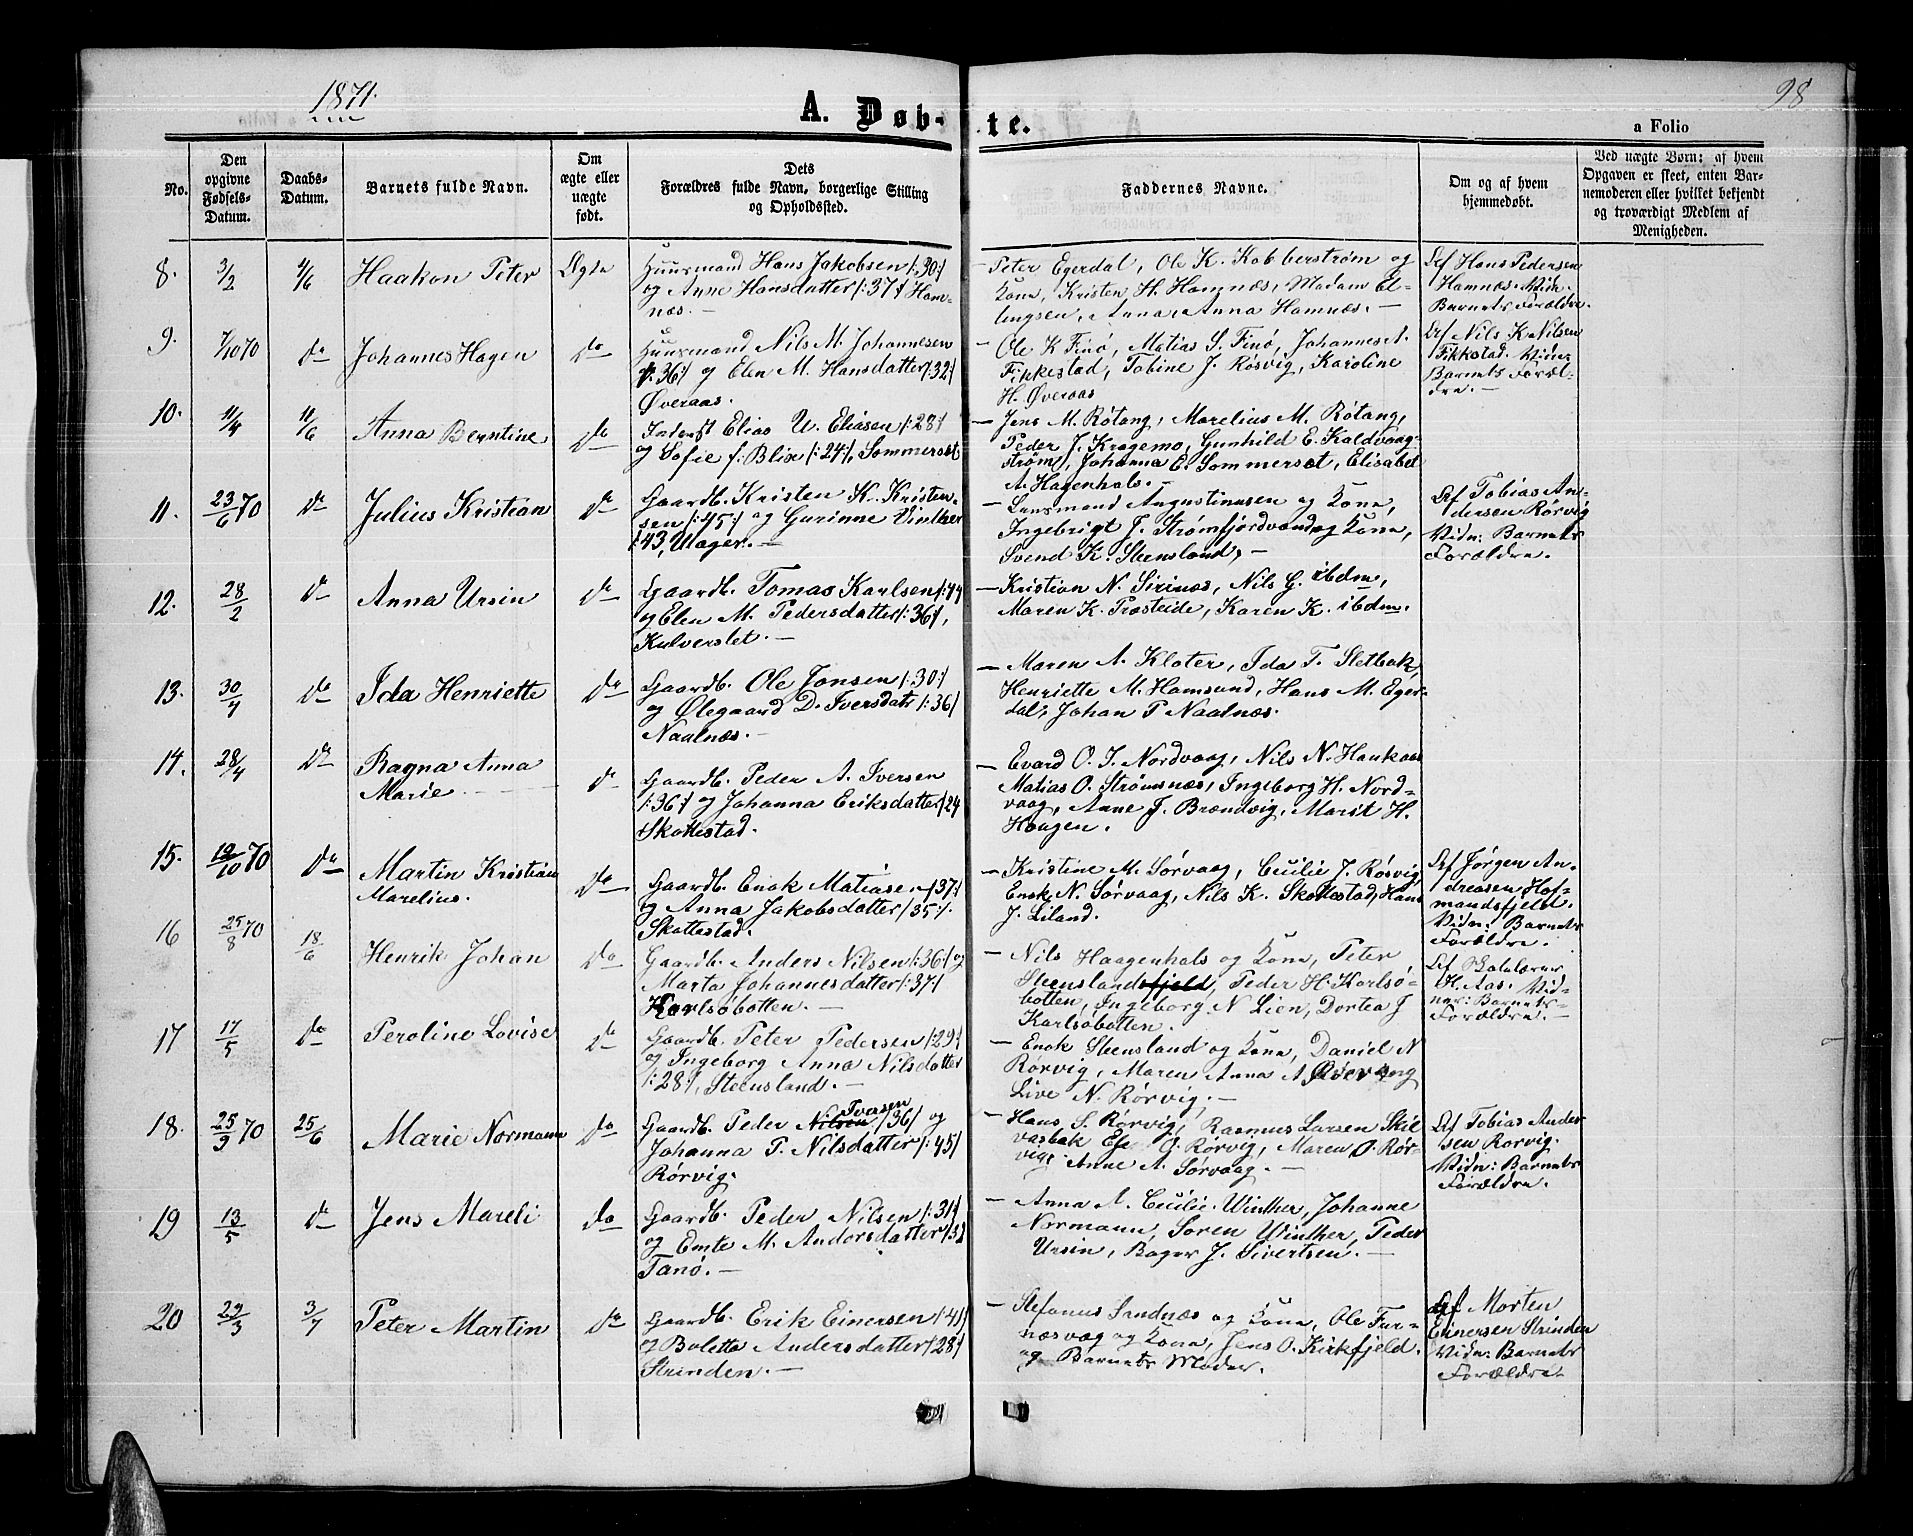 1871.
98
A. Døb-te.
a Folio
No.
Den
opgivne
Fødsels-
Datum.
Daabs-
Datum.
Barnets fulde Navn.
Om
ægte eller
uægte
født.
Dets
Forældres fulde Navn, borgerlige Stilling
og Opholdssted.
Faddernes Navne.
Om og af hvem
hjemmedøbt.
Ved uægte Børn: af hvem
Opgaven er skeet, enten Bar-
nemoderen eller hvilket bekjendt
og troværdigt Medlem af
Menigheden.
8.
3/2
4/6
Haakon Peter
Ægte
Huusmand Hans Jakobsen /:30:/
og Anne Hansdatter /:37:/ Ham-
næs. —
— Peter Egerdal, Ole K. Kobberstrøm og
Kone, Kristen H. Hamnæs, Madam El-
lingsen, Anna, Anna Hamnæs. —
Af Hans Pedersen
Hamnæs. Vidn.
Barnets Forældre.
9.
7/10 70
do
Johannes Hagen
do
Huusmand Nils M. Johannesen
/:36:/ og Elen M. Hansdatter /:32:/
Øveraas.
— Ole K Finø, Matias S. Finø, Johannes A.
Fikkestad, Tobine J. Røsvig, Karoline
H. Øveraas
Af Nils K. Nilsen
Fikkstad. Vidn:
Barnets Foræl-
dre. —
10.
11/4
11/6
Anna Berntine
do
Inderst Elias U. Eliasen /:28:/
og Sofie f: Blix /:24:/, Sommerset
— Jens M. Røtang, Marelius M. Røtang,
Peder J. Kragemo, Gunhild E. Kaldvaag-
strøm, Johanna E. Sommerset, Elisabet
A. Hagenhals. —
11.
23/6 70
do
Julius Kristian
do
Gaardb. Kristen K. Kristen-
sen /:45:/ og Gurinne Vinther
/:43, Ulager. —
— Lensmand Augustinusen og Kone,
Ingebrigt J. Strømfjordvand og Kone,
Svend K. Steensland, —
Af Tobias An-
dersen Rørvig
Vidn: Barnets
Forældre.
12.
28/2
do
Anna Ursin
do
Gaardb. Tomas Karlsen /:44
og Elen M. Pedersdatter /:36:/,
Kulverstet. —
— Kristian N. Sirinæs, Nils G. ibdm,
Maren K. Præsteide, Karen K. ibdm.
13.
30/4
do
Ida Henriette
do
Gaardb. Ole Jonsen /:30:/
og Ølegaard D. Iversdatr /:36/
Naalnæs. —
— Maren A. Kloter, Ida T. Sletbak,
Henriette M. Hamsund, Hans M. Eger-
dal, Johan P Naalnæs.
14.
28/4
do
Ragna Anna
Marie
do
Gaardb. Peder A. Iversen
/:36:/ og Johanna Eriksdatter /:24
Skottestad.
— Evard O. I. Nordvaag, Nils N. Haukaas
Matias O. Strømsnæs, Ingeborg H. Nord-
vaag, Anne J. Brændvig, Marit H.
Haagen.
15.
19/10 70
do
Martin Kristian
Marelius.
do
Gaardb. Enok Matiasen /37:/
og Anna Jakobsdatter /35:/.
Skottestad.
— Kristine M. Sørvaag, Cecilie J. Rørvig,
Enok N. Sørvaag, Nils K. Skottestad, Hans
J. Liland.
Af Jørgen An-
dreasen Hof-
mandsfjeld.
Vidn: Barnets
Forældre.
16
25/8 70
18/6
Henrik Johan
do
Gaardb. Anders Nilsen /:36:/ og
Marta Johannesdatter /:37:/
Karlsøbotten. —
— Nils Haagenhals og Kone, Peter
Steenslandsfjeld, Peder H. Karlsø-
botten, Ingeborg N Lien, Dortea J
Karlsøbotten.
Af Skolelærer
H. Aas. Vid-
ner: Barnets
Forældre. —
17
17/5
do
Peroline Lovise
do
Gaardb. Peter Pedersen /:29:/
og Ingeborg Anna Nilsdatter
/:28:/, Steensland. —
— Enok Steensland og Kone, Daniel N
Rørvig, Maren Anna A.
Live N. Rørvig. —
18.
25/9 70
25/6
Marie Normann
do
Gaardb. Peder Nilsen Iversen /36/ og
Johanna P. Nilsdatter /:45/
Rørvig.
— Hans S. Rørvig, Rasmus Larsen Skil-
vasbak O. Rørvig, Maren O. Rør-
vig. Anne A. Sørvaag. —
Af Tobias Ander
sen Rørvig.
Vidn: Barnets
Forældre.
19
13/5
do
Jens Mareli
do
Gaardb. Peder Nilsen /:31:/
og Emte M. Andersdatter /32
Tanø. —
— Anna A. Cecilie Winther, Johanne
Normann, Søren Winther, Peder
Ursin, Bager J. Sivertsen. —
20
29/3
3/7
Peter Martin
do
Gaardb. Erik Einersen /:41/
og Boletta Andersdatter /:28:/
Strinden. —
— Stefanus Sandnæs og Kone, Ole Fur-
næsvaag og Kone, Jens O. Kirkfjeld.
og Barnets Moder.
Af Morten
Einersen Strinden
Vidn: Barnets
Forældre.